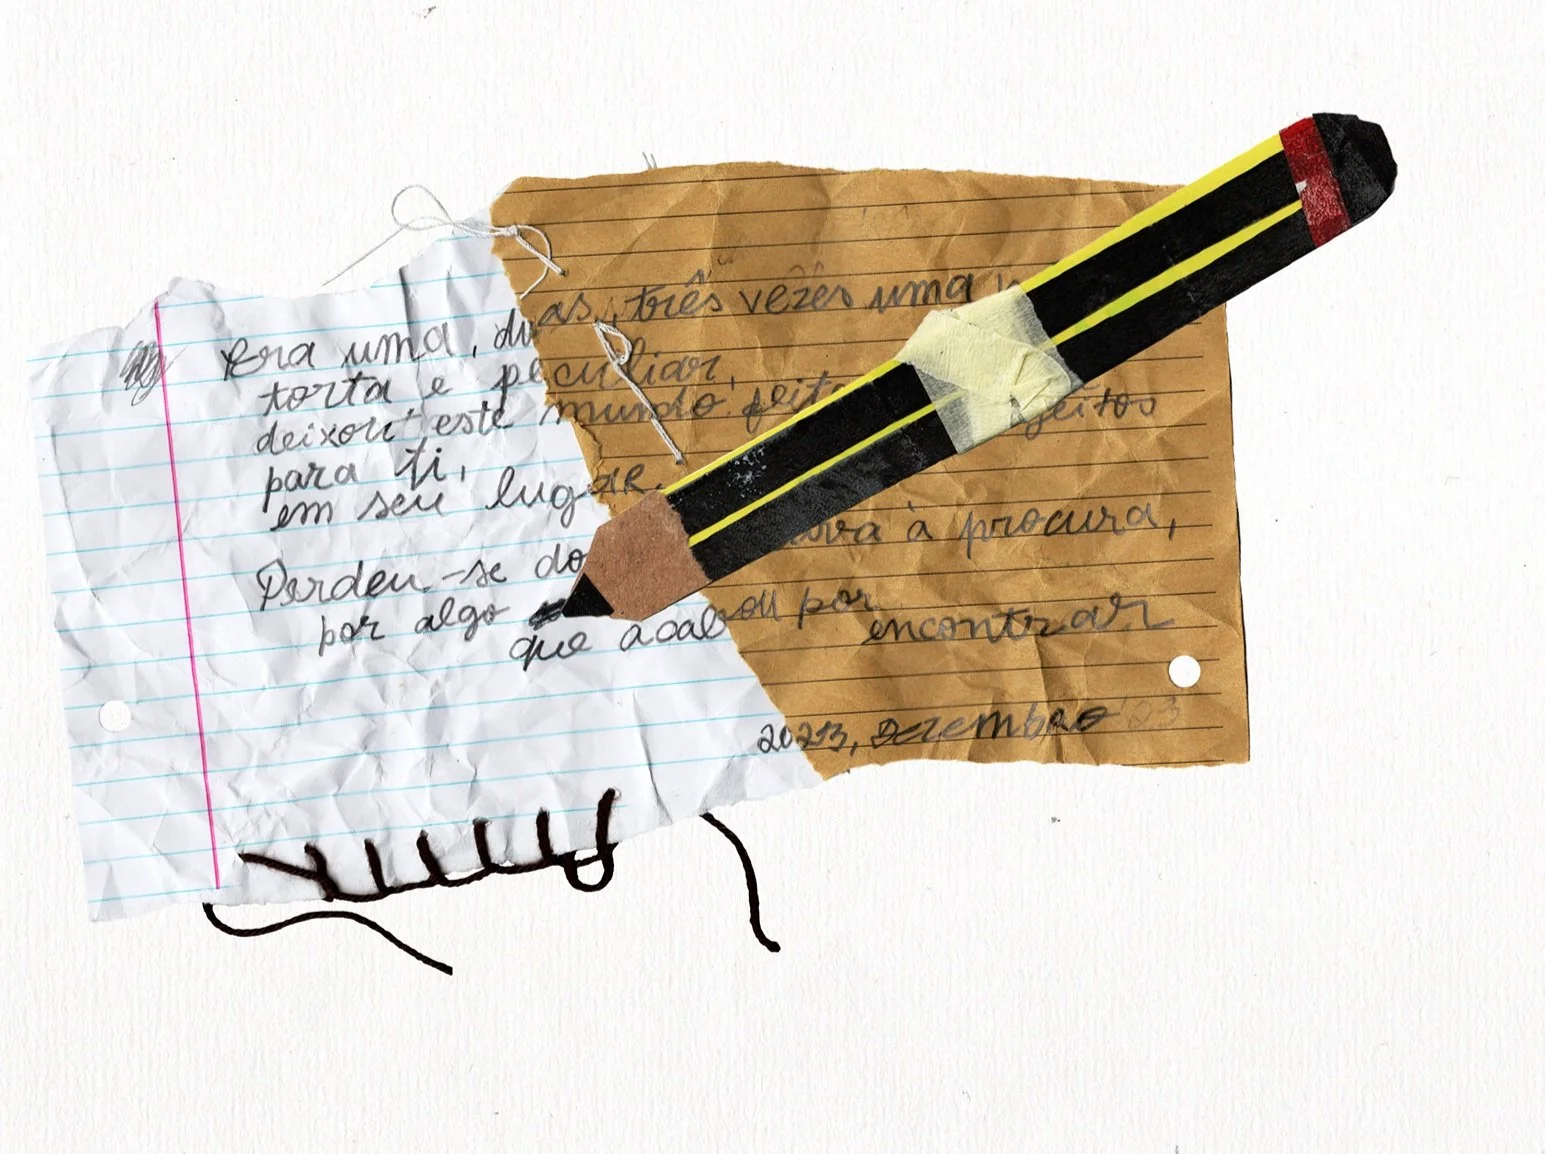 Era uma, duas, três vezes uma
torta e peculiar,
deixou este mundo feito jeitos
para ti,
em seu lugar.
Perdeu-se do à procura,
por algo
que acabou por
encontrar
2023, Dezembro '03